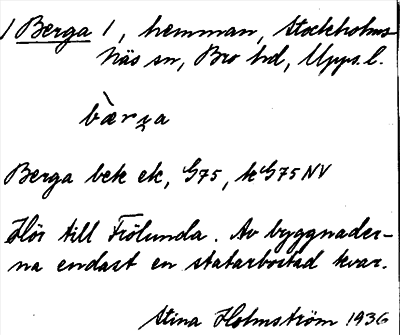 / Berga /, hemman, Stockholms-
Näs sn, Bro hd, Upps. l.
bær̀ᶎa
Berga bek ek, G75, kG75NV
Hör till Frölunda. Av byggnader-
na endast en statarbostad kvar.
Stina Holmström 1936